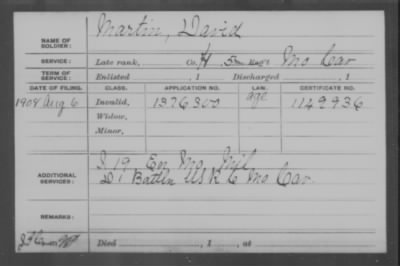 NAME OF SOLDIER: Martin, David
SERVICE: Late rank, Co. H, 5 Reg't Mo Cav
TERM OF SERVICE: Enlisted , 1 Discharged , 1
DATE OF FILING. CLASS. APPLICATION NO. LAW. CERTIFICATE NO.
1908 Aug 6 Invalid, 1376300 age 1149936
Widow,
Minor,
19 En Mo Mil
ADDITIONAL SERVICES: Battn U S R C Mo Cav.
REMARKS:
Died , 1 , at